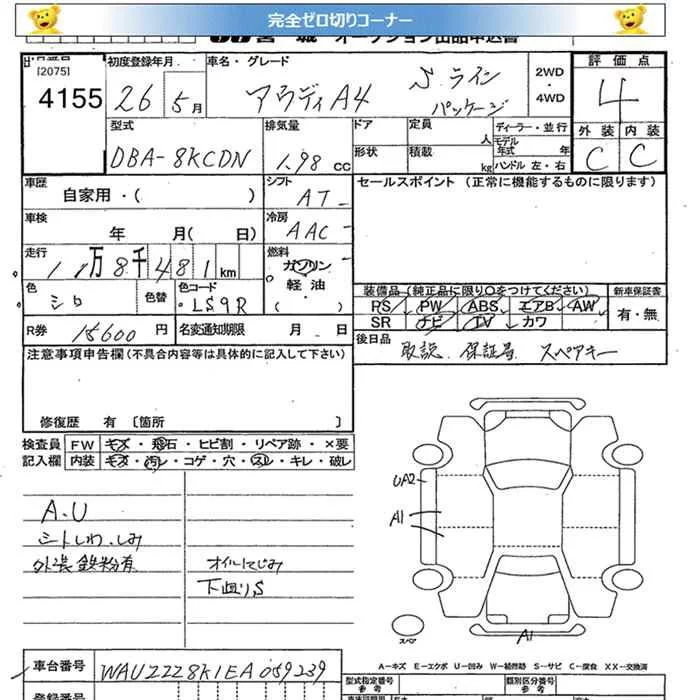 完全ゼロ切りコーナー
宮城 オークション出品申込書
[2075]
4155
初度登録年月
26 5月
車名・グレード
アウディA4 Sライン
パッケージ
2WD
・
4WD
評価点
4
外装 内装
C C
型式
DBA-8KCDN
排気量
1.98 CC
ドア
形状
定員 人
積載 kg
ディーラー・並行
モデル
年式 年
ハンドル 左・右
車歴
自家用・( )
シフト
AT
車検
年 月( 日)
冷房
AAC
セールスポイント (正常に機能するものに限ります)
走行
11万8千481km
燃料
ガソリン
軽油
( )
色
シロ
色替
色コード
LS9R
R券 15600 円
名変通知期限 月 日
装備品(純正品に限り○をつけてください)
PS PW ABS エアB AW
SR ナビ TV カワ
新車保証書
有・無
後日品
取説 保証書 スペアキー
注意事項申告欄(不具合内容等は具体的に記入して下さい)
修復歴 有 〔箇所 〕
検査員 FW キズ・飛石・ヒビ割・リペア跡・×要
記入欄 内装 キズ・汚レ・コゲ・穴・スレ・キレ・破レ
A.U
シートしわ.しみ
外装鉄粉有
オイルにじみ
下廻りS
UA2
A1
スペア
A1
車台番号 WAUZZZ8K1EA059239
A-キズ E-エクボ U-凹み W-補修跡 S-サビ C-腐食 XX-交換済
登録番号
型式指定番号
参考
類別区分番号
参考